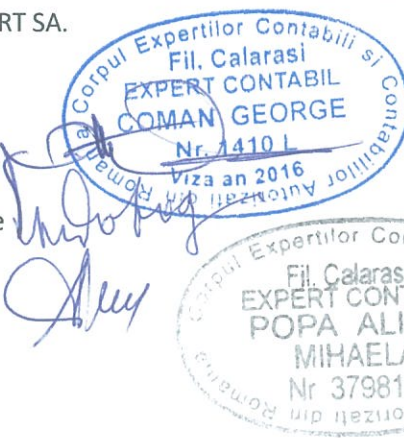 RT SA.
Corpul Expertilor Contabili si Contabililor Autorizati din Romania
Fil. Calarasi
EXPERT CONTABIL
COMAN GEORGE
Nr. 1410 L
Viza an 2016
e
Corpul Expertilor Co
Autorizati din Romania
Fil. Calaras
EXPERT CONT
POPA ALI
MIHAELA
Nr 37981